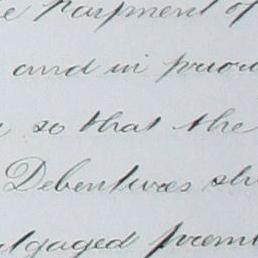 payment of
and in prior
so that the
Debentures sh
tgaged prem